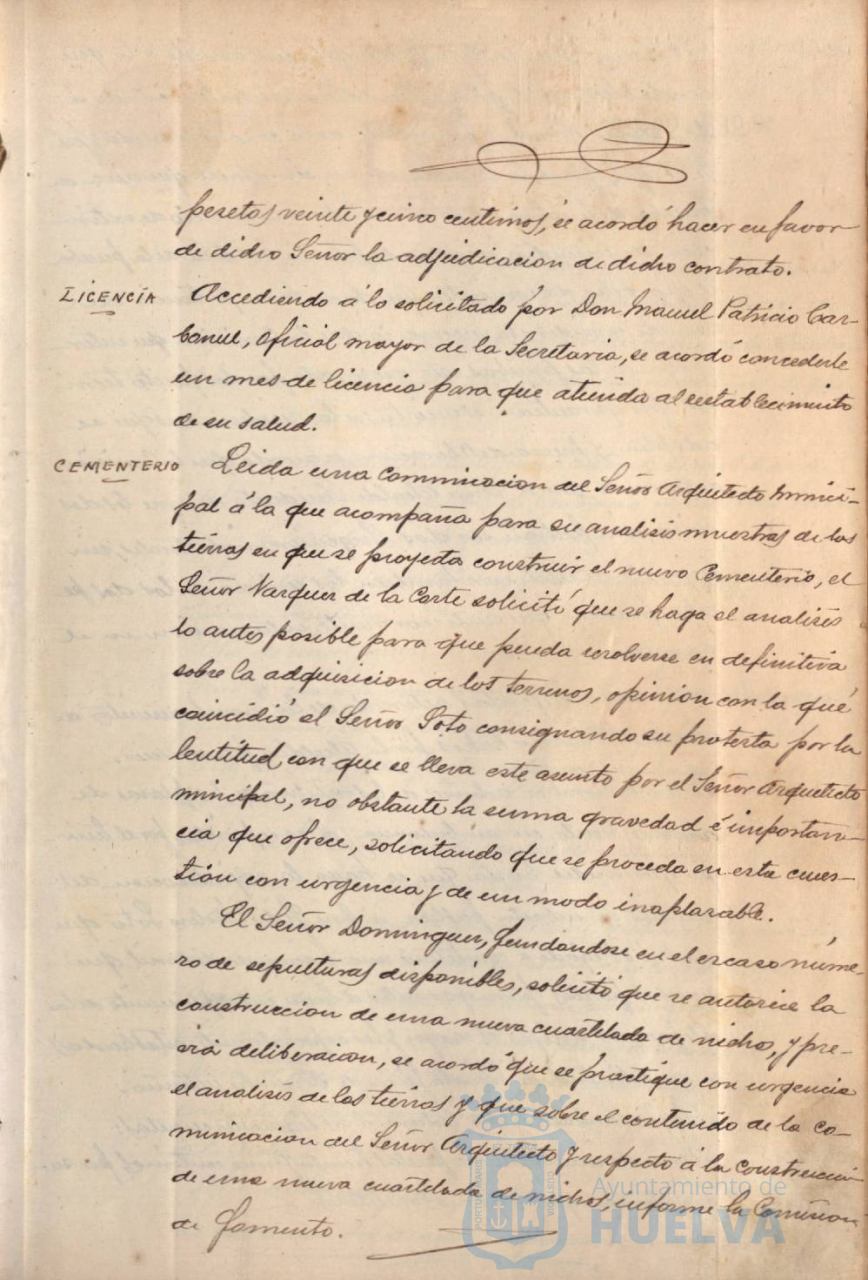 pesetas veinte y cinco centimos, se acordó hacer en favor
de dicho Señor la adjudicacion de dicho contrato.
LICENCIA
Accediendo á lo solicitado por Don Manuel Patricio Car-
bonell, oficial mayor de la Secretaria, se acordó concederle
un mes de licencia para que atienda al restablecimiento
de su salud.
CEMENTERIO
Leida una comunicacion del Señor Arquitecto munici-
pal á la que acompaña para su analisis muestras de las
tierras en que se proyecta construir el nuevo Cementerio, el
Señor Vazquez de la Corte solicitó que se haga el analisis
lo antes posible para que pueda resolverse en definitiva
sobre la adquisicion de los terrenos, opinion con la que
coincidió el Señor Soto consignando su protesta por la
lentitud con que se lleva este asunto por el Señor Arquitecto
municipal, no obstante la suma gravedad é importan-
cia que ofrece, solicitando que se proceda en esta cues-
tión con urgencia y de un modo inaplazable.
El Señor Dominguez, fundandose en el escaso núme-
ro de sepulturas disponibles, solicitó que se autorice la
construccion de una nueva cuartelada de nichos, y pre-
via deliberacion, se acordó que se practique con urgencia
el analisis de las tierras y que sobre el contenido de la co-
municacion del Señor Arquitecto y respecto á la construccion
de una nueva cuartelada de nichos, informe la Comision
de Fomento.
Ayuntamiento de
HUELVA